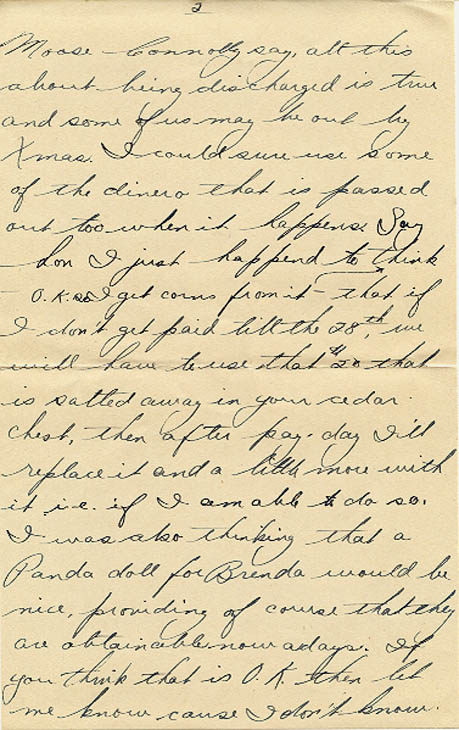 2
Moose Connolly say, all this
about being discharged is true
and some of us may be out by
Xmas. I could sure use some
of the dinero that is passed
out too when it happens. Say
hon I just happend to think
- O.K. so I get corns from it - that if
I don't get paid till the 28th, we
will have to use that $20 that
is salted away in your cedar
chest, then after pay-day I'll
replace it and a little more with
it i.e. if I am able to do so.
I was also thinking that a
Panda doll for Brenda would be
nice, providing of course that they
are obtainable now adays. If
you think that is O.K. then let
me know cause I don't know.